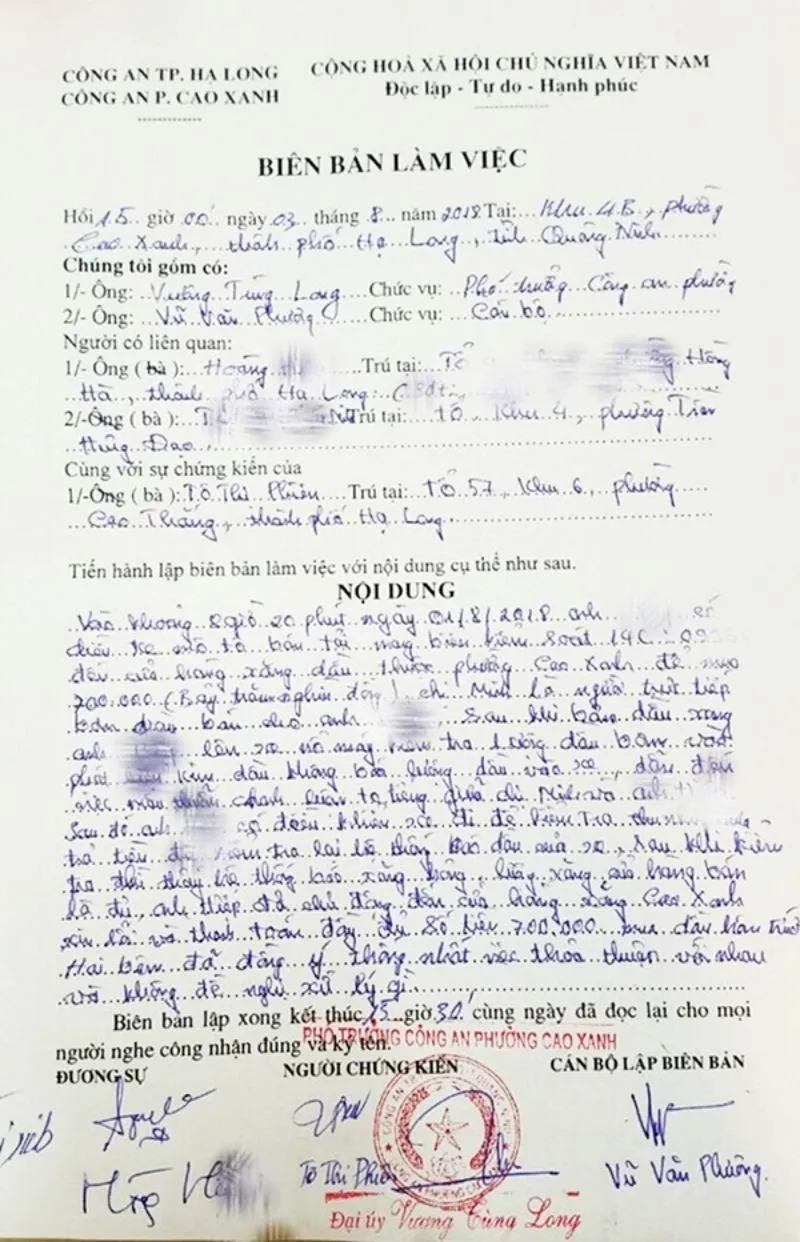 CÔNG AN TP. HẠ LONG
CỘNG HOÀ XÃ HỘI CHỦ NGHĨA VIỆT NAM
CÔNG AN P. CAO XANH
Độc lập - Tự do - Hạnh phúc
BIÊN BẢN LÀM VIỆC
Hồi 15 giờ 00 ngày 03 tháng 8 năm 2018 Tại: Khu 4B, phường
Cao Xanh, thành phố Hạ Long, tỉnh Quảng Ninh
Chúng tôi gồm có:
1/- Ông: Vương Tùng Long Chức vụ: Phó trưởng Công an phường
2/- Ông: Vũ Văn Phường Chức vụ: Cán bộ
Người có liên quan:
1/- Ông ( bà ): Hoàng Trú tại: Tổ Hồng
Hà, thành phố Hạ Long
2/-Ông ( bà ): Trú tại: tổ, Khu 4, phường Trần
Hưng Đạo
Cùng với sự chứng kiến của
1/-Ông ( bà ): Tô Thị Phiên Trú tại: Tổ 57, Khu 6, phường
Cao Thắng, thành phố Hạ Long
Tiến hành lập biên bản làm việc với nội dung cụ thể như sau.
NỘI DUNG
Vào khoảng 8 giờ 20 phút ngày 01/8/2018 anh có
điều xe mô tô bán tải mang biển kiểm soát 14C
đến cửa hàng xăng dầu thuộc phường Cao Xanh để mua
700.000 (Bảy trăm nghìn đồng) chị Minh là người trực tiếp
bơm dầu bán cho anh Sau khi bơm dầu xong
anh lên xe nổ máy kiểm tra lượng dầu bơm vào
phát hiện kim dầu không báo lượng dầu vào xe, dẫn đến
việc mâu thuẫn tranh luận to tiếng giữa chị Minh và anh
Sau đó anh có điều khiển xe đi để kiểm tra
trả tiền để kiểm tra lại hệ thống báo dầu của xe, Sau khi kiểm
tra thì thấy hệ thống báo xăng hỏng, lượng xăng cửa hàng bán
là đủ, anh Hiệp đã chủ động đến cửa hàng xăng Cao Xanh
xin lỗi và thanh toán đầy đủ số tiền 700.000 mua dầu hôm trước
Hai bên đã đồng ý thống nhất việc thỏa thuận với nhau
và không đề nghị xử lý gì
Biên bản lập xong kết thúc 15 giờ 30' cùng ngày đã đọc lại cho mọi
người nghe công nhận đúng và ký tên.
PHÓ TRƯỞNG CÔNG AN PHƯỜNG CAO XANH
ĐƯƠNG SỰ
NGƯỜI CHỨNG KIẾN
CÁN BỘ LẬP BIÊN BẢN
Tô Thị Phiên
Vũ Văn Phường.
Đại úy Vương Tùng Long